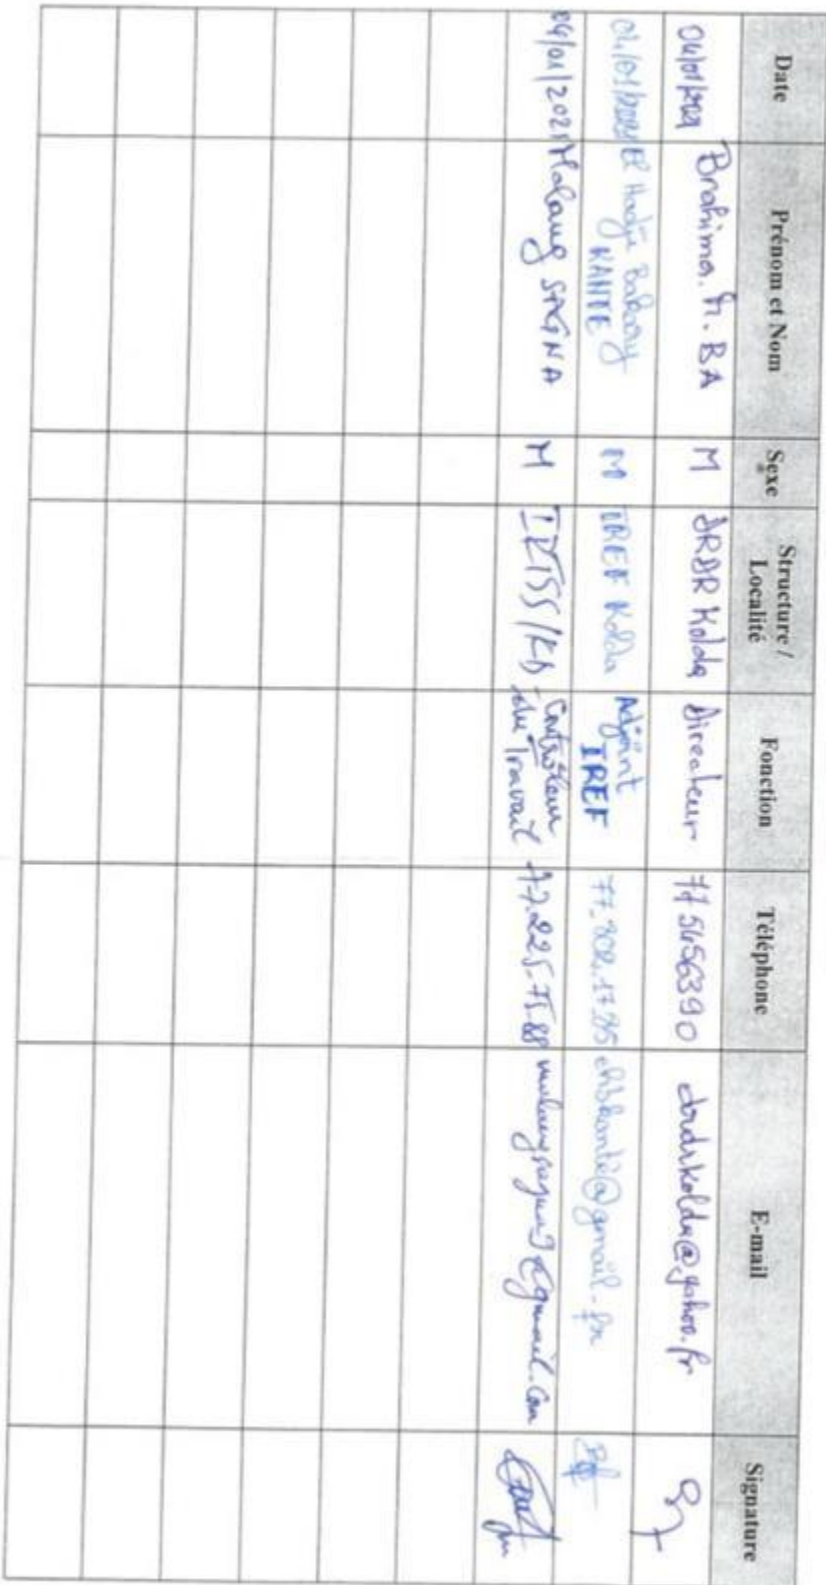 Date Prénom et Nom Sexe Structure / Localité Fonction Téléphone E-mail Signature
04/01/2021 Brahima. M. BA M DRDR Kolda Directeur 775456390 drdrkolda@yahoo.fr
04/01/2021 El Hadji Bakary KANTE M IREF Kolda Adjoint IREF 77. 302.17.95 @gmail.fr
04/01/2021 Malang SAGNA M IRTSS/KD Contrôleur du Travail 77.225.75.88 @gmail.com